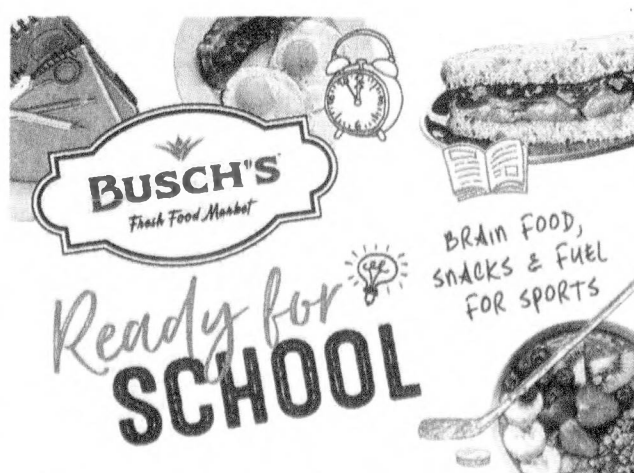 BUSCH'S
Fresh Food Market
Ready for
SCHOOL
BRAIN FOOD,
SNACKS & FUEL
FOR SPORTS